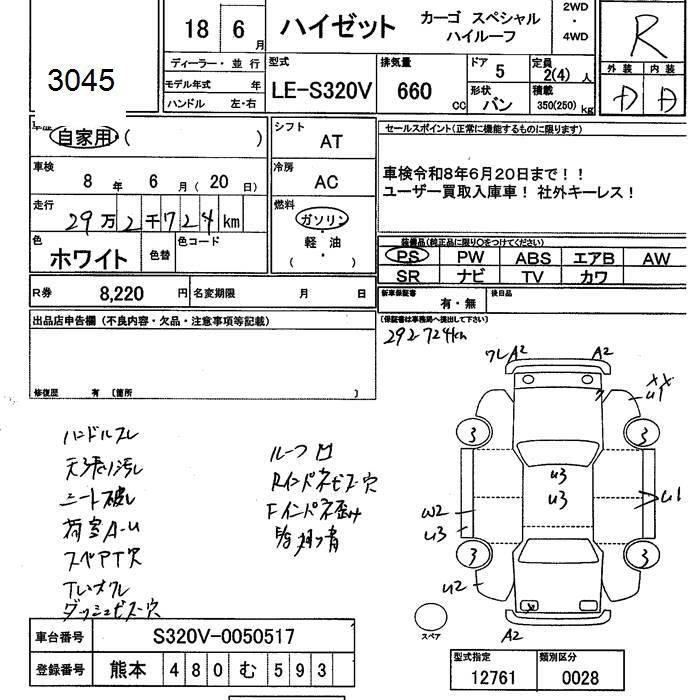 18 6月 ハイゼット カーゴ スペシャル ハイルーフ 2WD ・ 4WD
R
3045
ディーラー・並行 型式 排気量 ドア 定員 外装 内装
モデル年式 年 LE-S320V 660 CC 5 2(4)人
ハンドル 左・右 形状 バン 積載 350(250)kg
自家用・( )
シフト AT
セールスポイント(正常に機能するものに限ります)
車検 8年 6月(20日)
冷房 AC
車検令和8年6月20日まで!!
ユーザー買取入庫車! 社外キーレス!
走行 29万2千724km
燃料 ガソリン・軽油 ( )
色 ホワイト 色替 色コード
装備品(純正品に限り○をつけてください)
PS PW ABS エアB AW
SR ナビ TV カワ
R券 8,220円 名変期限 月 日
新車保証書 有・無 後日品
(保証書は事務局へ提出して下さい)
出品店申告欄(不良内容・欠品・注意事項等記載)
292724km
修復歴 有 〔箇所 〕
ワレA2 A2
XX
u1
3 3
u3
u3
u1
W2
u3
3 3
u2
A2
スペア
ハンドルスレ
天張り汚れ
シート破れ
荷室A-U
スペアT欠
ダッシュビス穴
ルーフ凹
RインパネビスK穴
車台番号 S320V-0050517
登録番号 熊本 480 む 593
型式指定 類別区分
12761 0028